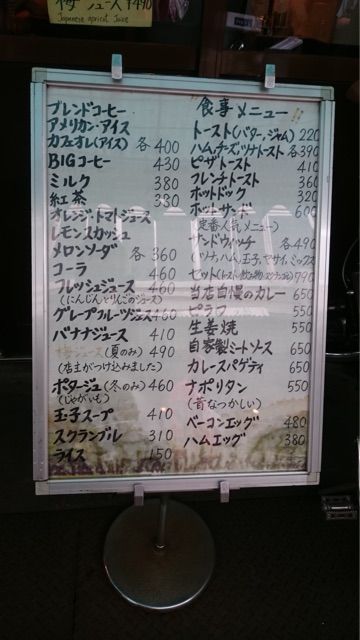 梅ジュース ¥490
Japanese apricot Juice
ブレンドコーヒー
アメリカン・アイス
カフェオレ(アイス) 各400
BIGコーヒー 430
ミルク 380
紅茶 380
オレンジ・トマトジュース
レモンスカッシュ
メロンソーダ 各360
コーラ 460
フレッシュジュース 460
(にんじんとりんごのジュース)
グレープフルーツジュース 460
バナナジュース 410
梅ジュース(夏のみ) 490
(店主がつけ込みました)
ポタージュ(冬のみ) 460
(じゃがいも)
玉子スープ 410
スクランブル 310
ライス 150
食事メニュー!!
トースト(バター,ジャム) 220
ハム,チーズ,ツナトースト 各390
ピザトースト 410
フレンチトースト 360
ホットドック 320
ホットサンド 600
(定番人気メニュー)
サンドウィッチ 各490
(ツナ,ハム,玉子,ヤサイ,ミックス)
セット 790
当店自慢のカレー 650
ピラフ 550
生姜焼 550
自家製ミートソース 650
カレースパゲティ 650
ナポリタン 550
(昔なつかしい)
ベーコンエッグ 480
ハムエッグ 380